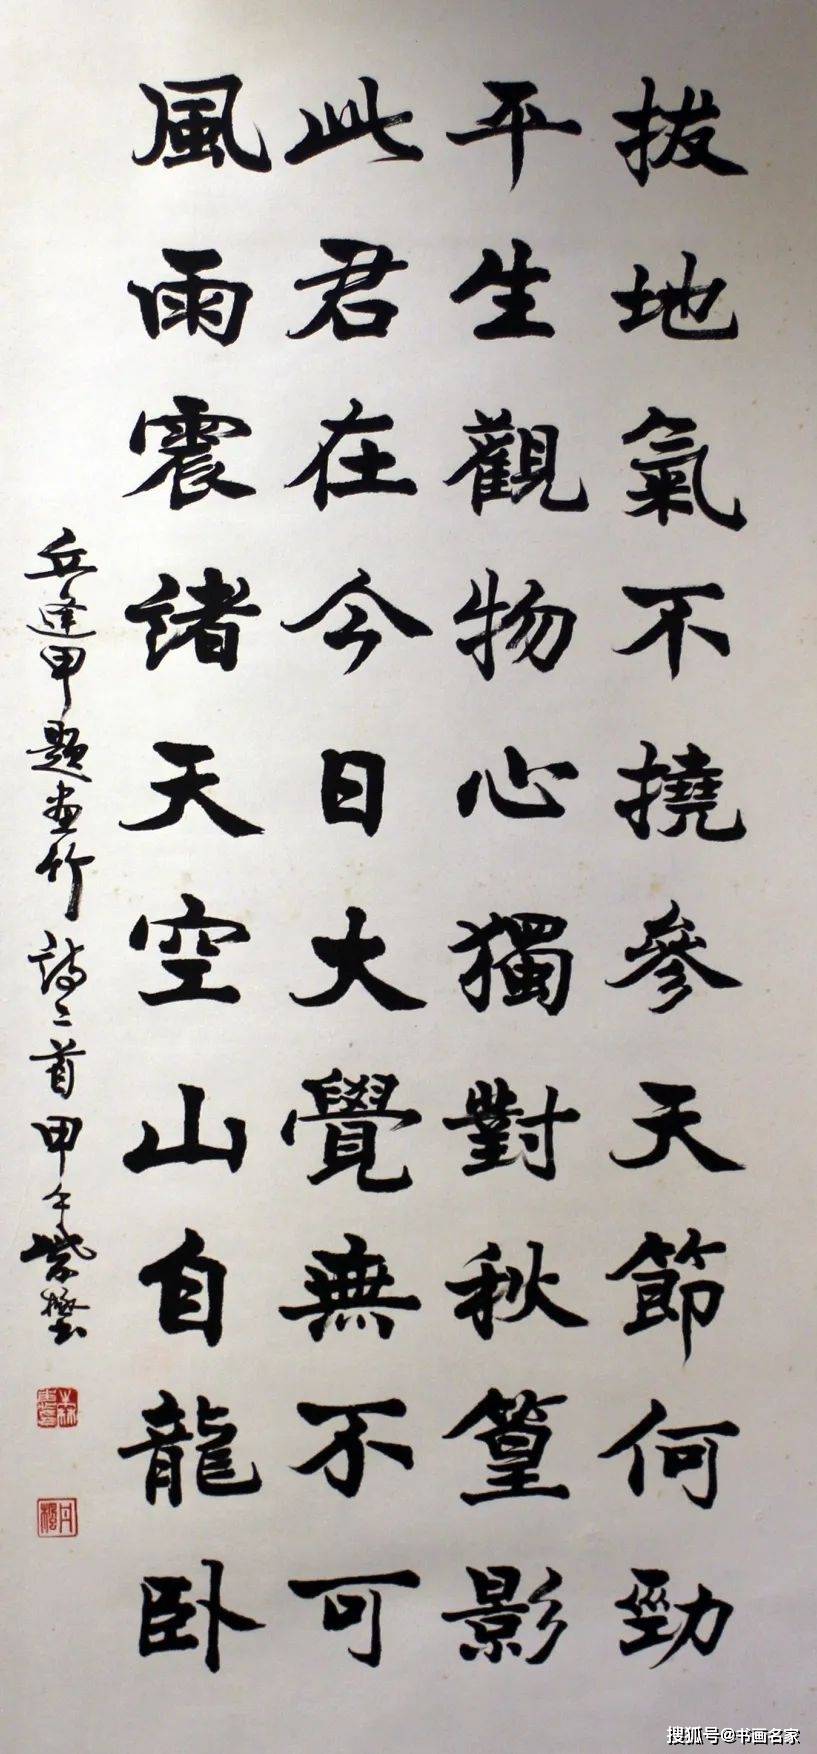 拔地氣不撓參天節何勁
平生觀物心獨對秋篁影
此君在今日大覺無不可
風雨震諸天空山自龍卧
丘逢甲題画竹詩二首甲午紫
搜狐号@书画名家